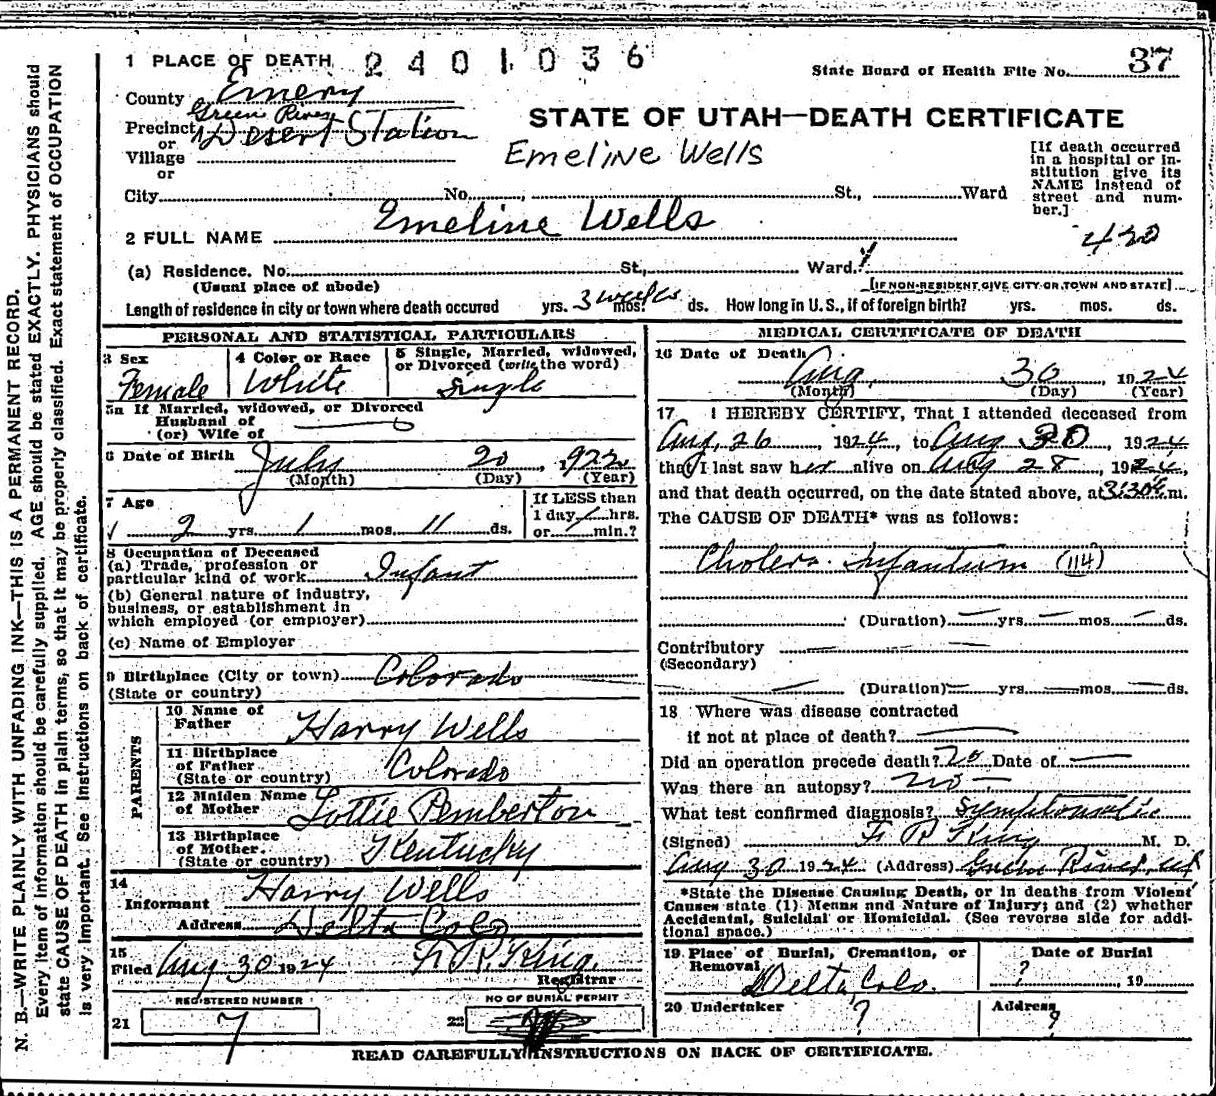 1 PLACE OF DEATH 2401036
State Board of Health File No. 37
County Emery
Green River
Precinct Desert Station
or
Village
or
STATE OF UTAH—DEATH CERTIFICATE
Emeline Wells
[If death occurred
in a hospital or in-
stitution give its
NAME instead of
street and num-
ber.]
City No. St., Ward
2 FULL NAME Emeline Wells
420
(a) Residence. No. St., Ward.
(Usual place of abode)
[IF NON-RESIDENT GIVE CITY OR TOWN AND STATE]
Length of residence in city or town where death occured yrs. 3 weeks mos. ds. How long in U. S., if of foreign birth? yrs. mos. ds.
PERSONAL AND STATISTICAL PARTICULARS
3 Sex
Female
4 Color or Race
White
5 Single, Married, widowed,
or Divorced (write the word)
Single
5a If Married, widowed, or Divorced
Husband of
(or) Wife of
6 Date of Birth July 20, 1922
(Month) (Day) (Year)
7 Age
2 yrs. 1 mos. 11 ds.
If LESS than
1 day hrs.
or min.?
8 Occupation of Deceased
(a) Trade, profession or
particular kind of work Infant
(b) General nature of industry,
business, or establishment in
which employed (or employer)
(c) Name of Employer
9 Birthplace (City or town) Colorado
(State or country)
PARENTS
10 Name of
Father Harry Wells
11 Birthplace
of Father
(State or country) Colorado
12 Maiden Name
of Mother Lottie Pemberton
13 Birthplace
of Mother.
(State or country) Kentucky
14
Informant Harry Wells
Address Delta Colo
15
Filed Aug 30 1924 F. R. King.
Registrar
REGISTERED NUMBER
21 7
NO OF BURIAL PERMIT
22
MEDICAL CERTIFICATE OF DEATH
16 Date of Death
Aug. 30, 1924
(Month) (Day) (Year)
17 I HEREBY CERTIFY, That I attended deceased from
Aug. 26, 1924, to Aug 30, 1924
that I last saw her alive on Aug 28, 1924,
and that death occurred, on the date stated above, at 3:30 m.
The CAUSE OF DEATH* was as follows:
Cholera infantum (114)
(Duration) yrs. mos. ds.
Contributory
(Secondary)
(Duration) yrs. mos. ds.
18 Where was disease contracted
if not at place of death?
Did an operation precede death? no Date of
Was there an autopsy? no
What test confirmed diagnosis? Symptomatic
(Signed) F R King M. D.
Aug 30 1924 (Address) Green River, Ut
*State the Disease Causing Death, or in deaths from Violent
Causes state (1) Means and Nature of Injury; and (2) whether
Accidental, Suicidal or Homicidal. (See reverse side for addi-
tional space.)
19 Place of Burial, Cremation, or
Removal
Delta, Colo.
Date of Burial
? , 19
20 Undertaker
?
Address
?
READ CAREFULLY INSTRUCTIONS ON BACK OF CERTIFICATE.
N. B.—WRITE PLAINLY WITH UNFADING INK—THIS IS A PERMANENT RECORD.
Every item of information should be carefully supplied. AGE should be stated EXACTLY. PHYSICIANS should
state CAUSE OF DEATH in plain terms, so that it may be properly classified. Exact statement of OCCUPATION
is very important. See instructions on back of certificate.